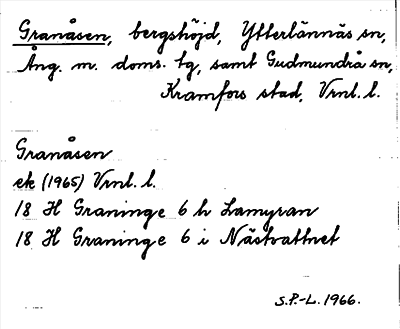 Granåsen, bergshöjd, Ytterlännäs sn,
Ång. m. doms. tg, samt Gudmundrå sn,
Kramfors stad, Vrnl. l.
Granåsen
ek (1965) Vrnl. l.
18 H Graninge 6 h Lamyran
18 H Graninge 6 i Nästvattnet
S.P.-L. 1966.